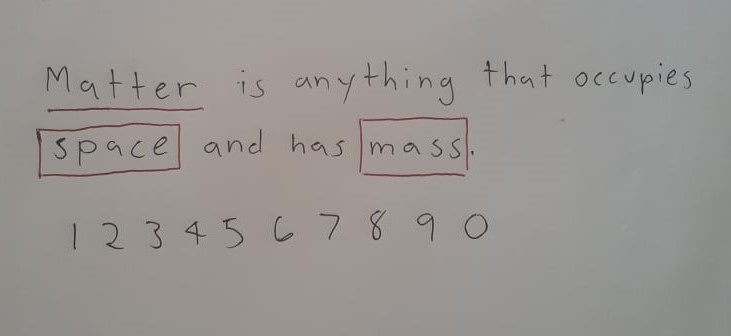 Matter is anything that occupies
space and has mass.
1 2 3 4 5 6 7 8 9 0